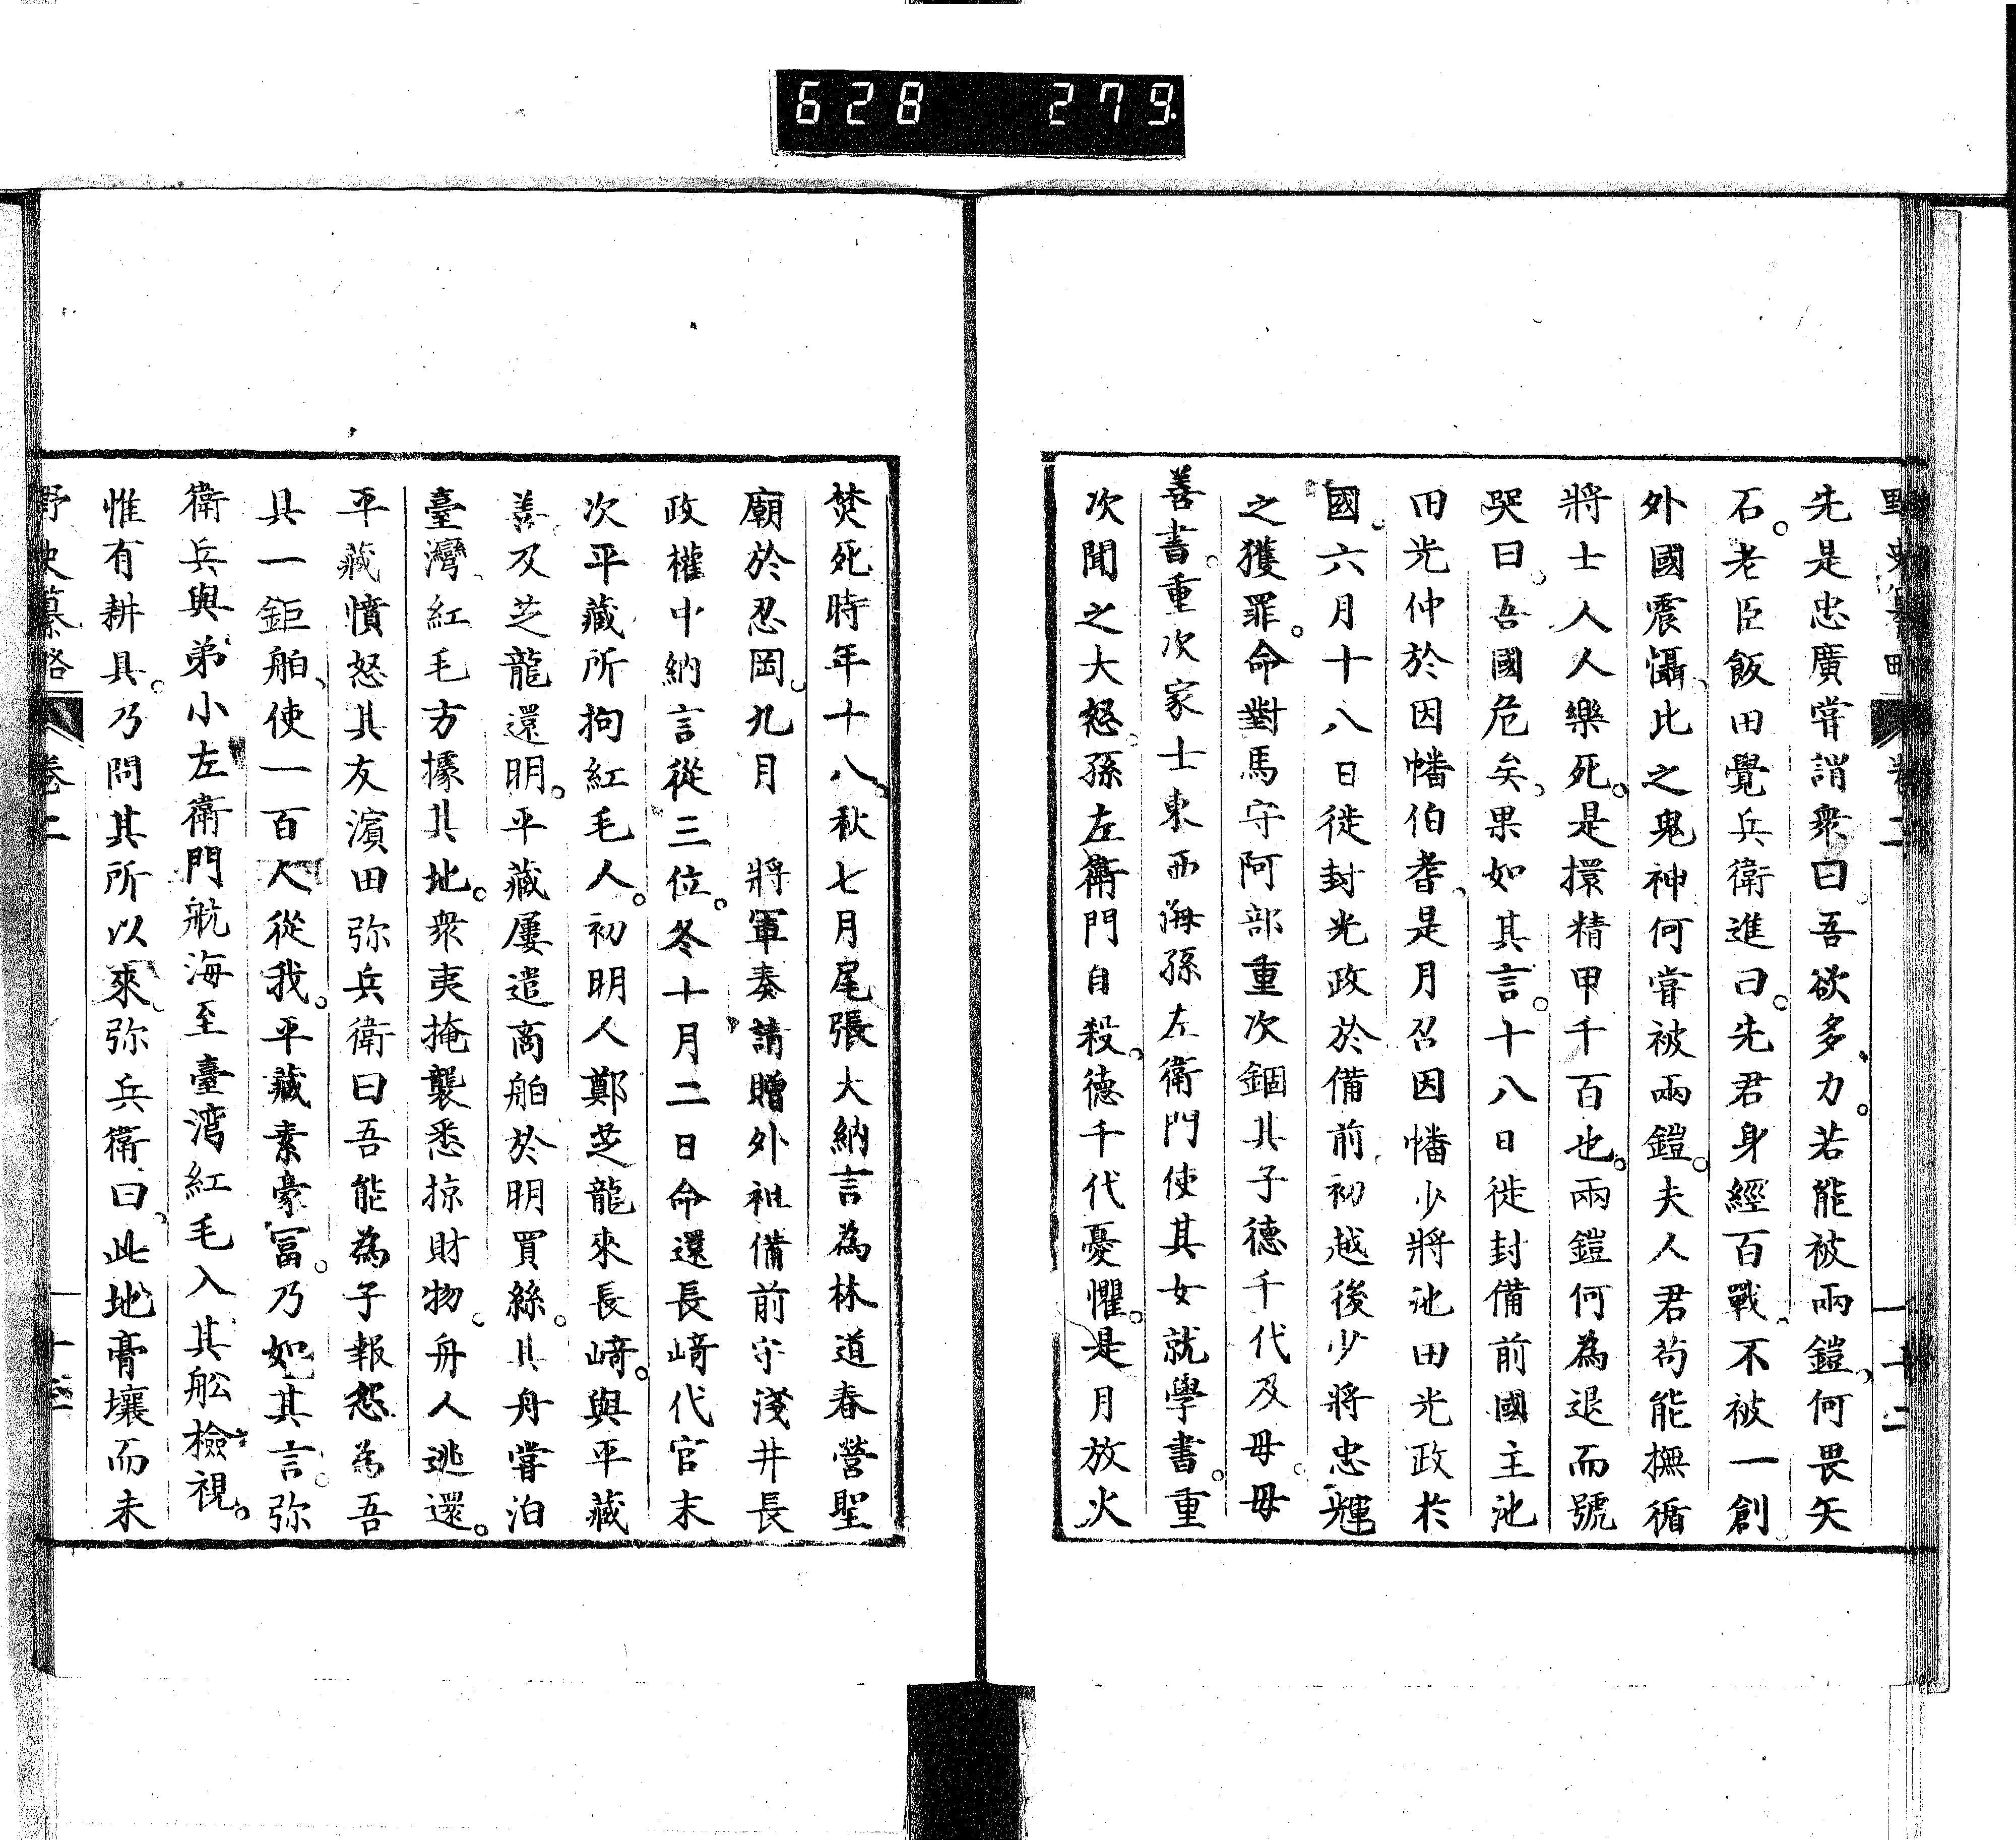 628 279
野史纂略 卷二 十二
先是忠廣嘗謂衆曰吾欲多力。若能被兩鎧、何畏矢
石。老臣飯田覺兵衛進曰。先君身經百戰、不被一創
外國震懾、比之鬼神何嘗被兩鎧。夫人君苟能撫循
將士人人樂死。是擐精甲千百也。兩鎧何為退而號
哭曰、吾國危矣、果如其言。十八日徙封備前國主池
田光仲於因幡伯耆、是月召因幡少將池田光政於
國。六月十八日徙封光政於備前初越後少將忠輝
之獲罪。命對馬守阿部重次錮其子德千代及母。母
善書。重次家士東西海孫左衛門使其女就學書。重
次聞之大怒。孫左衛門自殺。德千代憂懼。是月放火
焚死時年十八。秋七月尾張大納言為林道春營聖
廟於忍岡。九月 將軍奏請贈外祖備前守淺井長
政權中納言從三位。冬十月二日命還長﨑代官末
次平藏所拘紅毛人。初明人鄭芝龍來長﨑。與平藏
善。及芝龍還明。平藏屢遣商舶於明買絲。其舟嘗泊
臺灣、紅毛方據其地。衆夷掩襲悉掠財物。舟人逃還。
平藏憤怒其友濵田弥兵衛曰吾能為子報怨。為吾
具一鉅舶、使一百人從我。平藏素豪冨。乃如其言。弥
衛兵與弟小左衛門航海至臺湾紅毛入其舩檢視。
惟有耕具。乃問其所以來、弥兵衛曰、此地膏壤而未
野史纂略 卷二